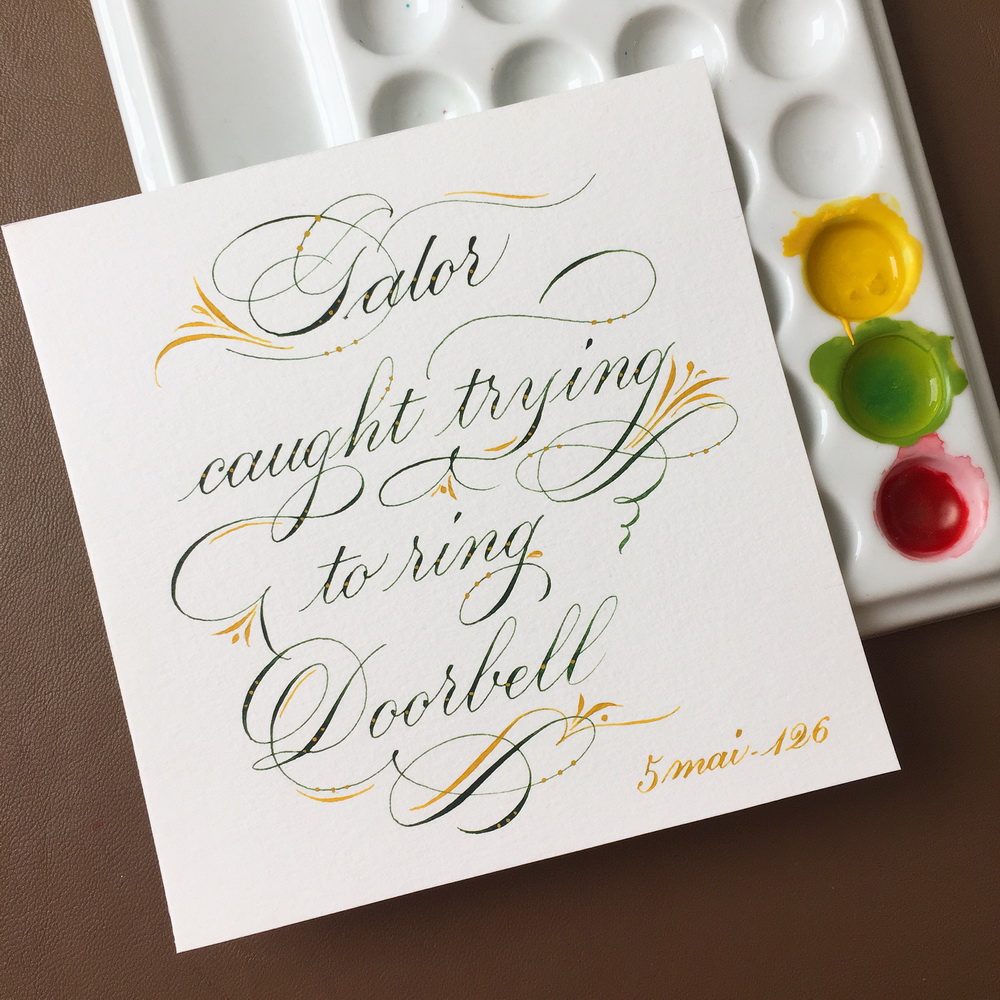 Gator
caught trying
to ring
Doorbell
5 mai - 126